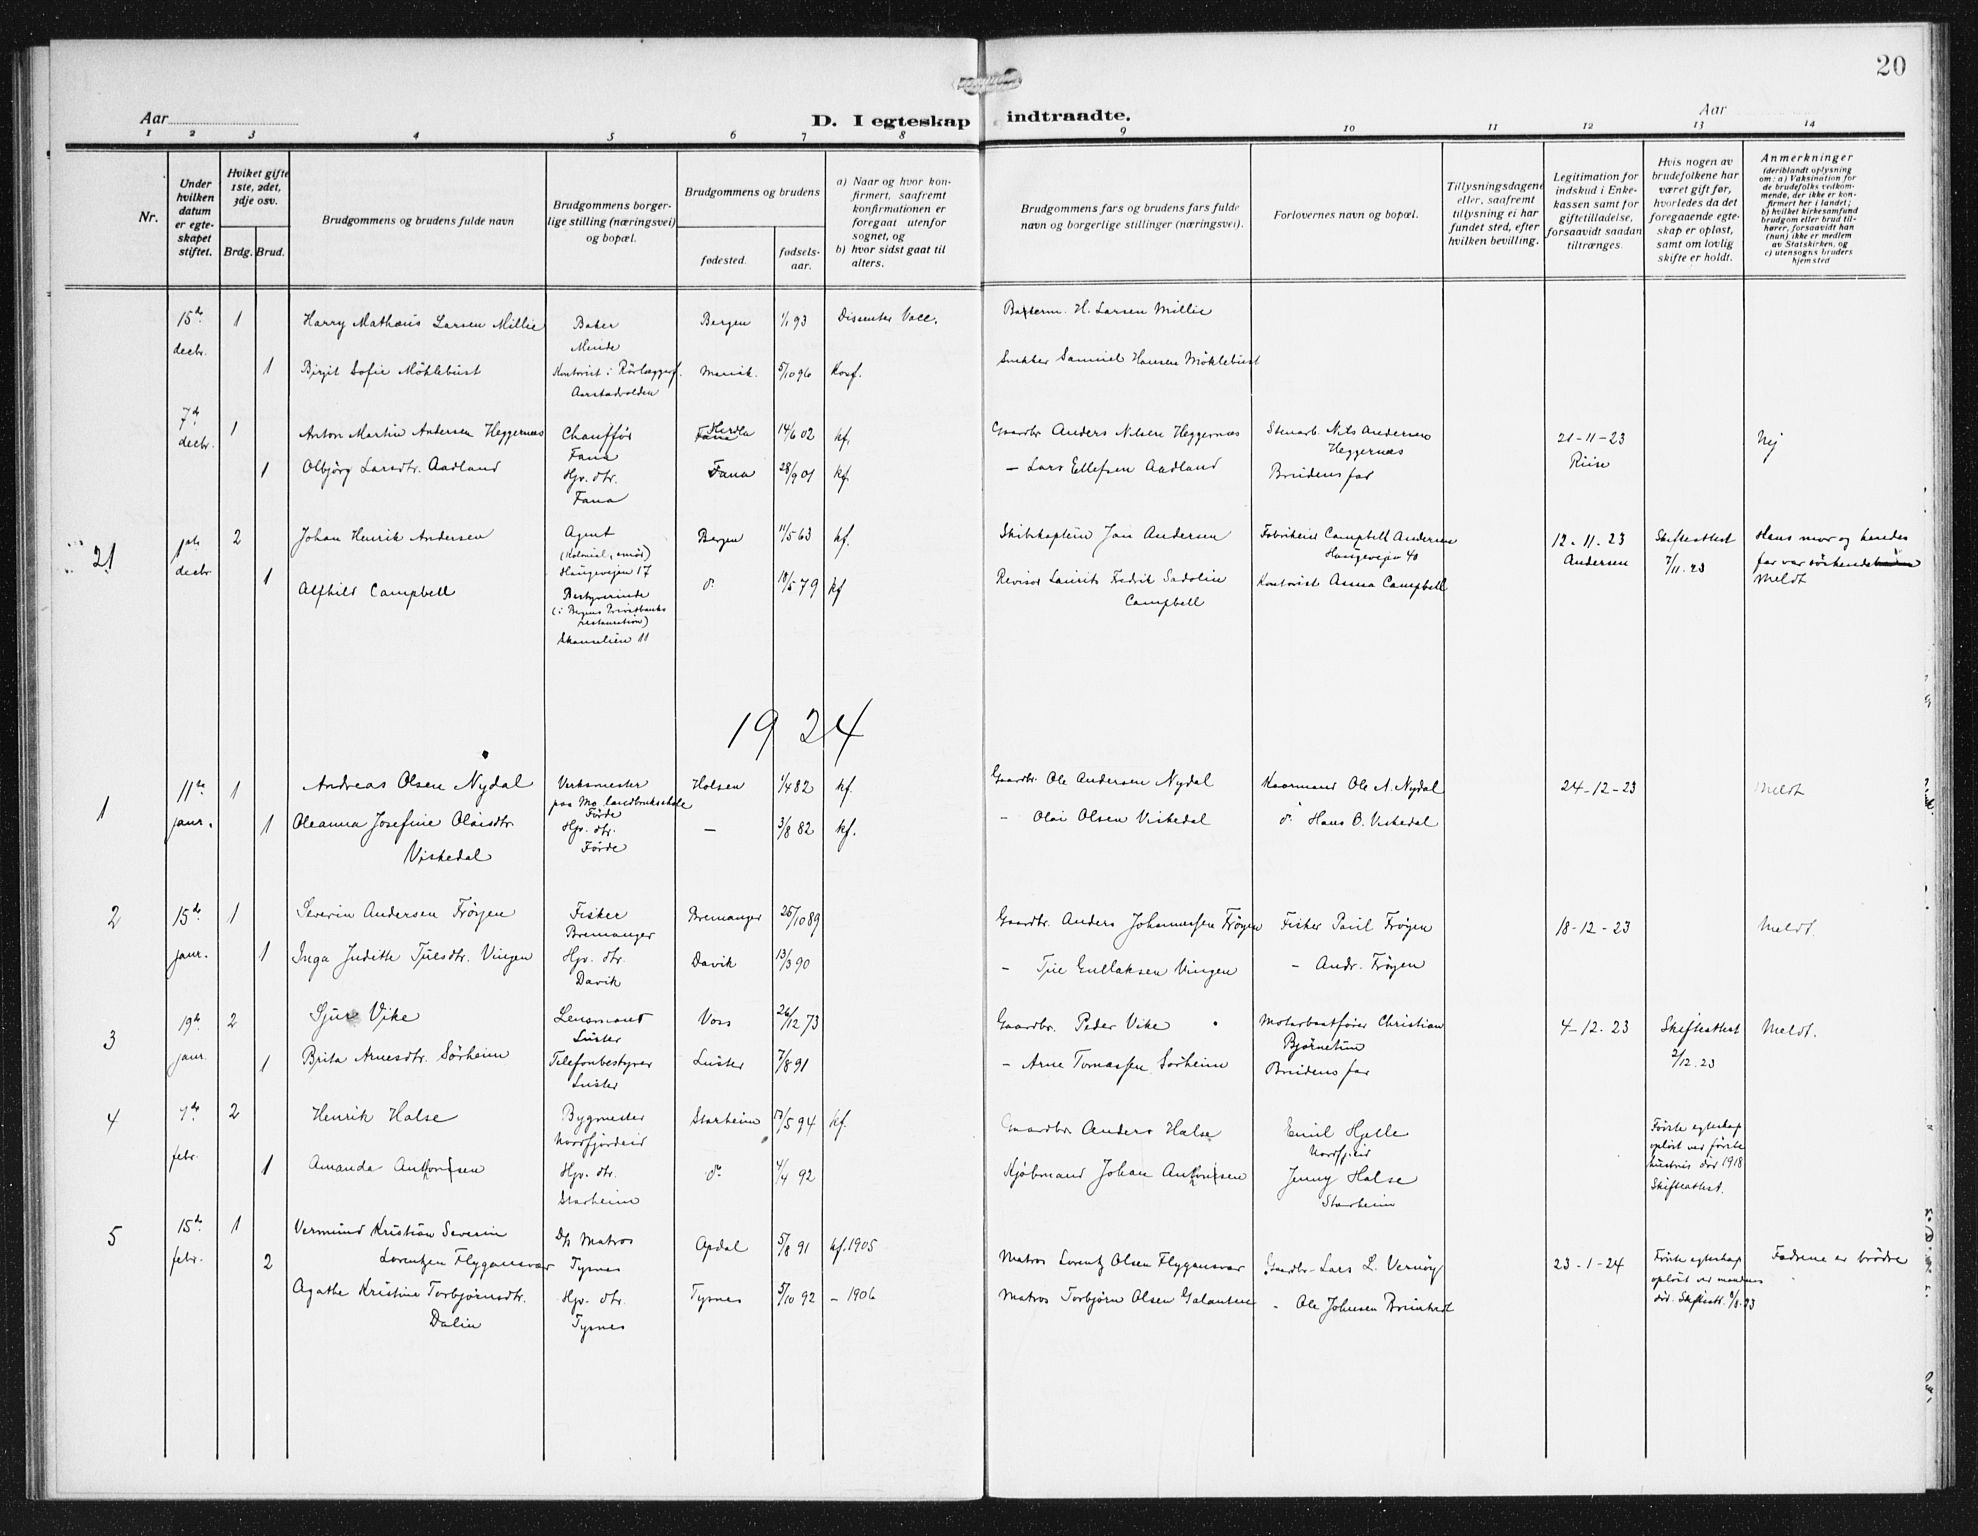 20
Aar
D. I egteskap indtraadte.
Aar
1 2 3 4 5 6 7 8 9 10 11 12 13 14
Nr.
Under hvilken datum er egteskapet stiftet.
Hviket gifte 1ste, 2det, 3dje osv.
Brdg. Brud.
Brudgommens og brudens fulde navn
Brudgommens borgerlige stilling (næringsvei) og bopæl.
Brudgommens og brudens
fødested.
fødselsaar.
a) Naar og hvor konfirmert, saafremt konfirmationen er foregaat utenfor sognet, og
b) hvor sidst gaat til alters.
Brudgommens fars og brudens fars fulde navn og borgerlige stillinger (næringsvei).
Forlovernes navn og bopæl.
Tillysningsdagene eller, saafremt tillysning ei har fundet sted, efter hvilken bevilling.
Legitimation for indskud i Enkekassen samt for giftetilladelse, forsaavidt saadan tiltrænges.
Hvis nogen av brudefolkene har været gift før, hvorledes da det foregaaende egteskap er opløst, samt om lovlig skifte er holdt.
Anmerkninger
(deriblandt oplysning om: a) Vaksination for de brudefolks vedkommende, der ikke er konfirmert her i landet;
b) hvilket kirkesamfund brudgom eller brud tilhører, forsaavidt han (hun) ikke er medlem av Statskirken, og
c) utensogns bruders hjemsted
15de decbr. 1 Harry Mathæus Larsen Millie Baker Minde Bergen 1/1 93 Dissenter Vacc. Bakerm. H. Larsen Millie
1 Birgit Sofie Møklebust Kontorist i Rørlæggerf. Aarstadvolden 5/10 96 Konf. Snekker Samuel Hansen Møklebust
7de decbr. 1 Anton Martin Andersen Heggernæs Chauffør Fana Herdla Fana 14/6 02 kf. Gaardbr. Anders Nilsen Heggernæs Stenarb. Nils Andersen Heggernæs 21-11-23 Riise Nej
1 Olbjørg Larsdtr. Aadland Hjv. dtr. Fana Fana 28/9 01 kf. – Lars Ellefsen Aadland Brudens far
21 decbr 2 Johan Henrik Andersen Agent Haugevejen 17 Bergen 11/5 63 kf. Skibskaptein Jan Andersen Fabrikeier Campbell Andersen Haugevejen 40 12-11-23 Andersen Skifteattest 7/11.23 Hans mor og hendes far var søskende Meldt
1 Alfhild Campbell Bestyrerinde (i Bergens Privatbanks restauration) Skanselien 11 do 18/5 79 kf Revisor Laurits Fredrik Sadolin Campbell Kontorist Anna Campbell
1924
1 11te janr. 1 Andreas Olsen Nydal Verksmester paa Mo landbruksskole Førde Holsen 1/4 82 kf. Gaardbr. Ole Andersen Nydal Kaarmand Ole A. Nydal 24-12-23 Meldt
1 Oleanna Josefine Olaisdtr. Viskedal Hjv. dtr. Førde – 3/8 82 kf. – Olai Olsen Viskedal do Hans O. Viskedal
2 15de janr. 1 Severin Andersen Frøyen Fisker Bremanger Bremanger 25/10 89 Gaardbr. Anders Johannessen Frøyen Fisker Paul Frøyen 18-12-23 Meldt.
1 Inga Judithe Tuesdtr. Vingen Hjv. dtr. Davik Davik 13/3 90 – Tue Gullaksen Vingen – Andr. Frøyen
3 19de janr. 2 Sjur Vike Lensmand Luster Voss 26/12 73 Gaardbr. Peder Vike Motorbaatfører Christian Bjørnetun 4-12-23 Skifteattest 2/12.23 Meldt.
1 Brita Arnesdtr. Sørheim Telefonbestyrer Luster Luster 7/8 91 – Arne Tomassen Sørheim Brudens far
4 7de febr. 2 Henrik Halse Bygmester Nordfjordeid Starheim 17/5 94 kf. Gaardbr. Anders Halse Emil Hjelle Nordfj.eid Første egteskap opløst ved første hustrus død 1918 Skifteattest.
1 Amanda Antonisen Hjv. dtr. Starheim do 4/4 92 Kjøbmand Johan Antonisen Jenny Halse Starheim
5 15de febr. 1 Vermund Kristian Severin Lorentzen Flygansvær Matros Tysnes Opdal 5/8 91 kf. 1905 Matros Lorentz Olsen Flygansvær Gaardbr. Lars L. Vernøy 23-1-24 Første egteskap opløst ved mandens død. Fædrene er brødre
2 Agathe Kristine Torbjørnsdtr. Dalin Hjv. dtr. Tysnes Tysnes 5/10 92 – 1906 Matros Torbjørn Olsen Galauten – Ole Johnsen